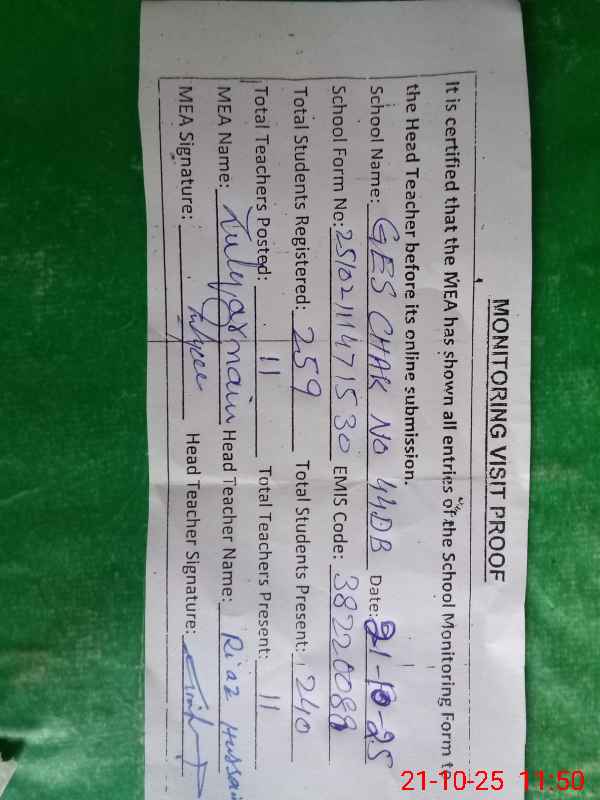 MONITORING VISIT PROOF
It is certified that the MEA has shown all entries of the School Monitoring Form t
the Head Teacher before its online submission.
School Name: GES CHAK NO 44DB Date: 21-10-25
School Form No: EMIS Code: 38220089
Total Students Registered: 259 Total Students Present: 240
Total Teachers Posted: 11 Total Teachers Present: 11
MEA Name: Zulqarnain Head Teacher Name: Riaz Hussain
MEA Signature: Head Teacher Signature:
21-10-25 11:50